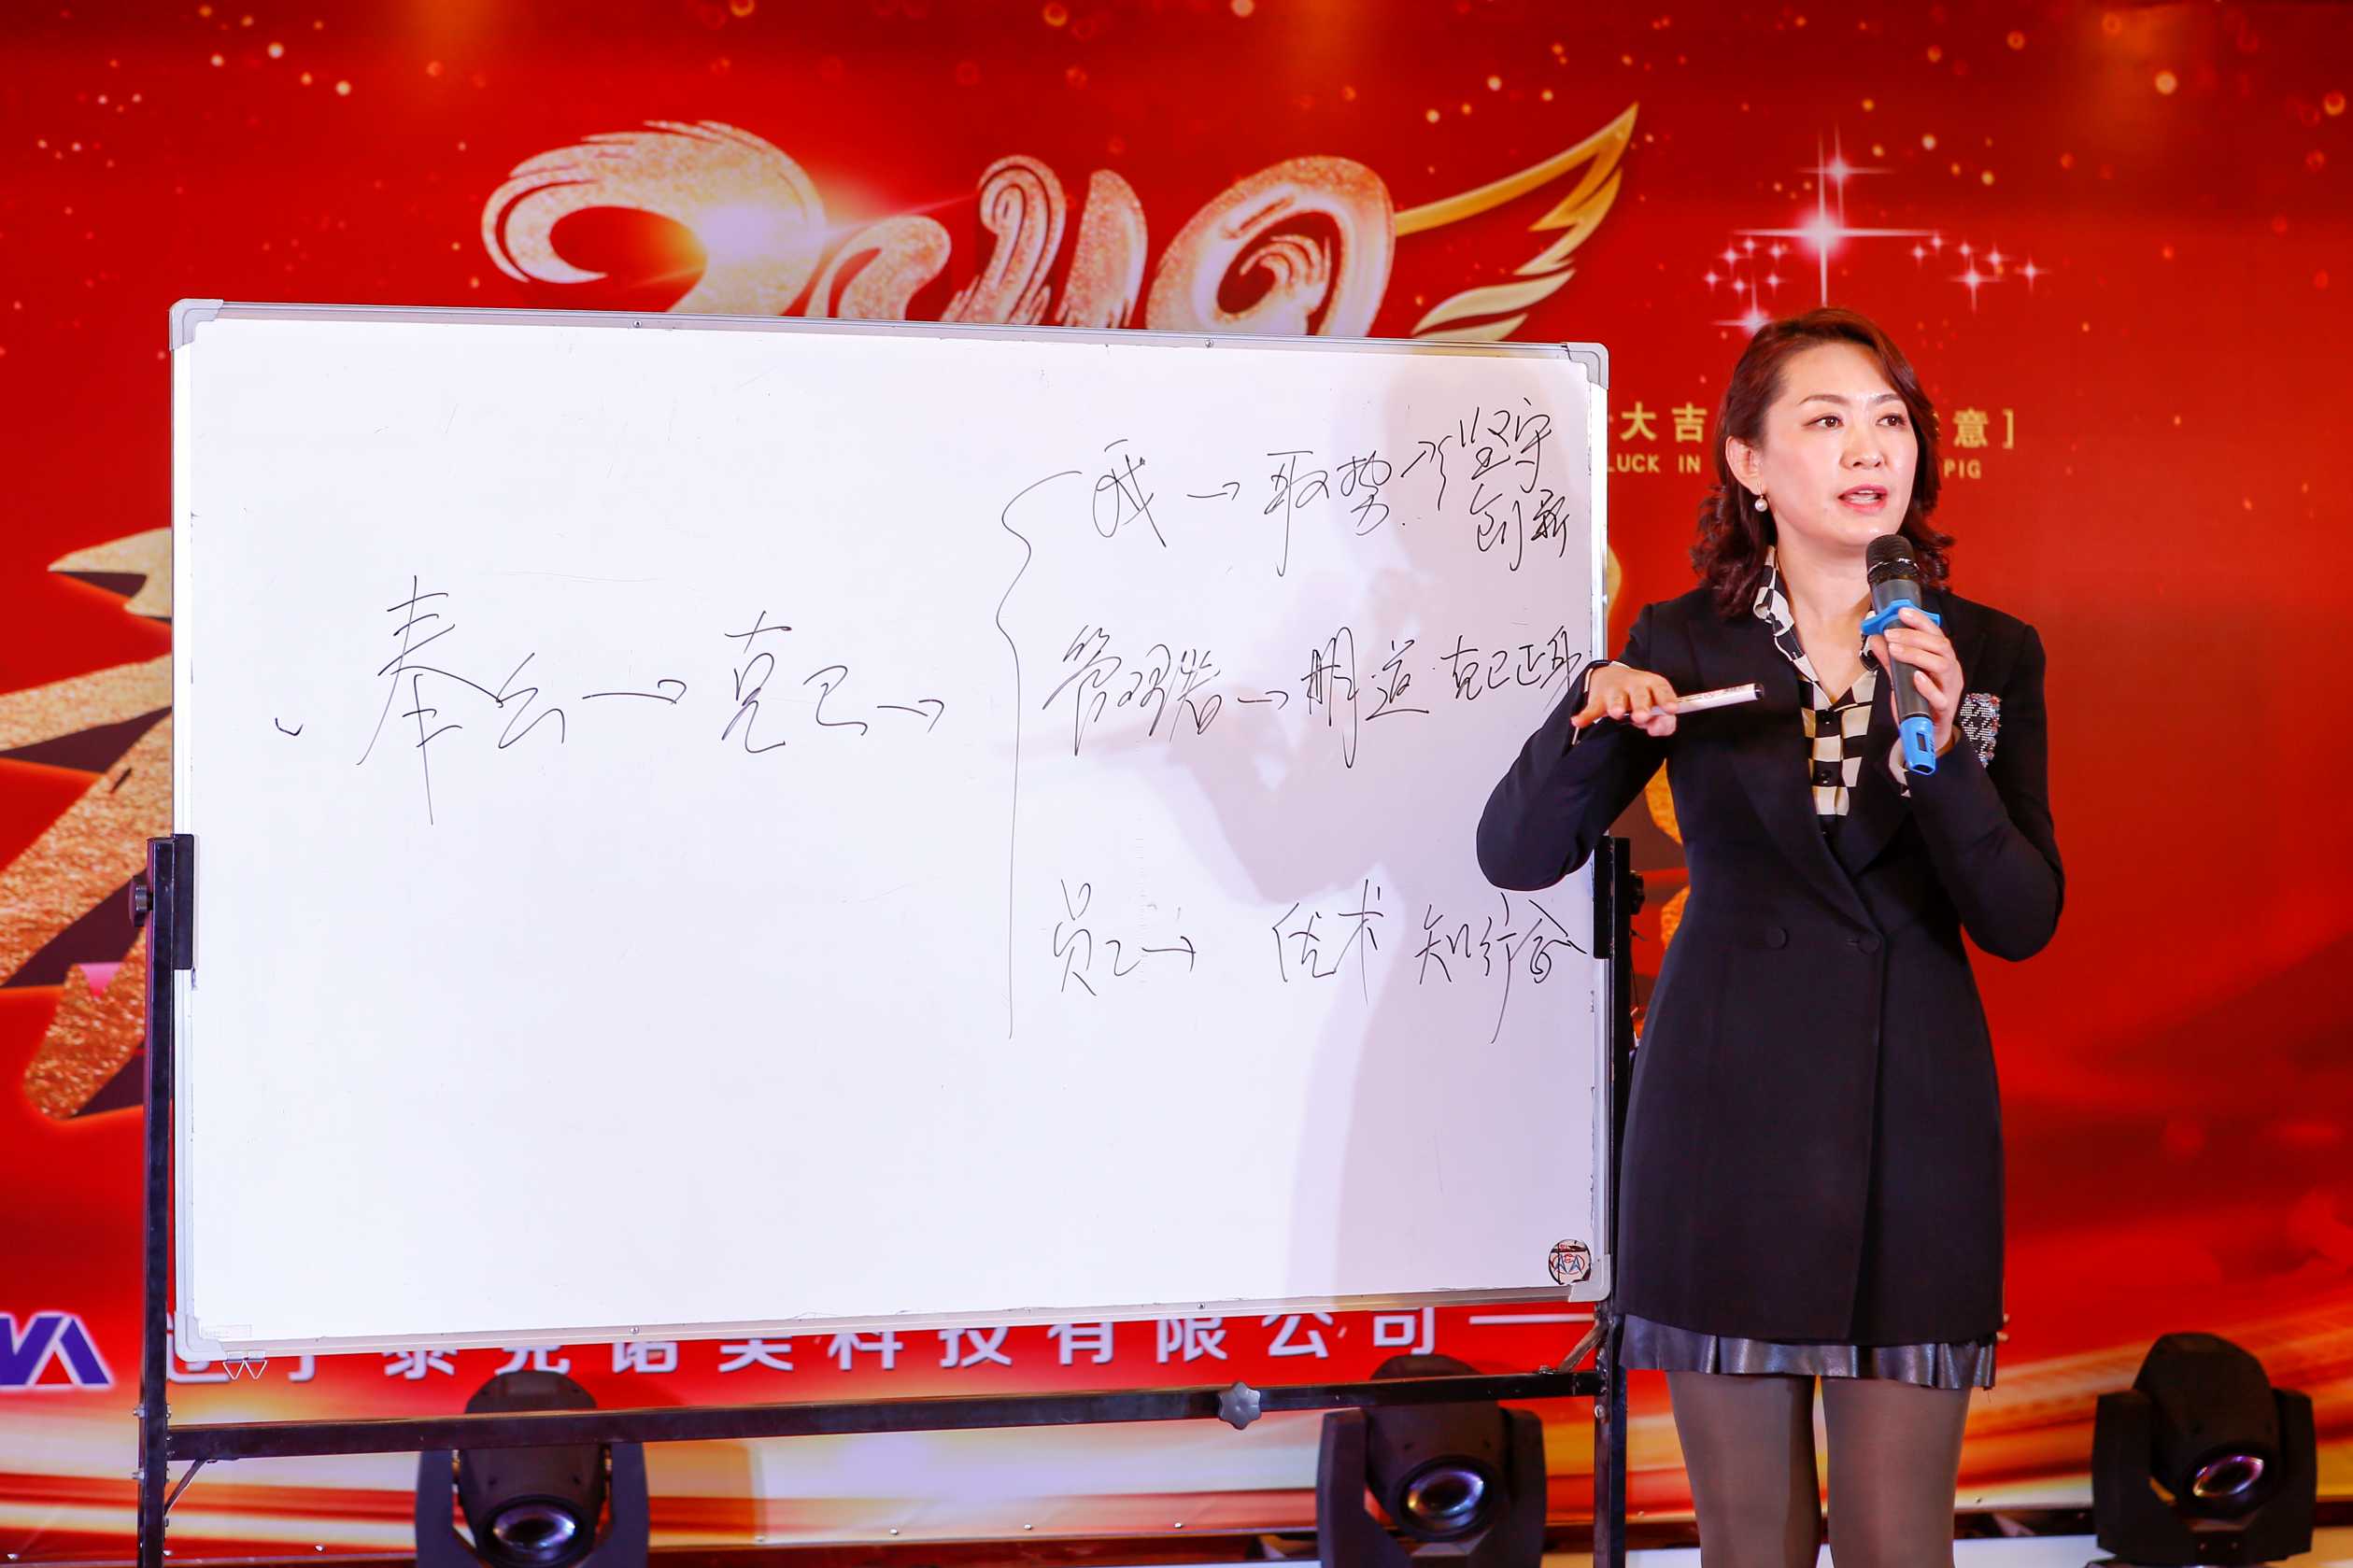 2019
大吉
意]
LUCK IN
PIG
我→取势→坚守
创新
奉公→克己→
管理者→明道 克己正身
员工→ 优术 知行合
泰克诺美科技有限公司